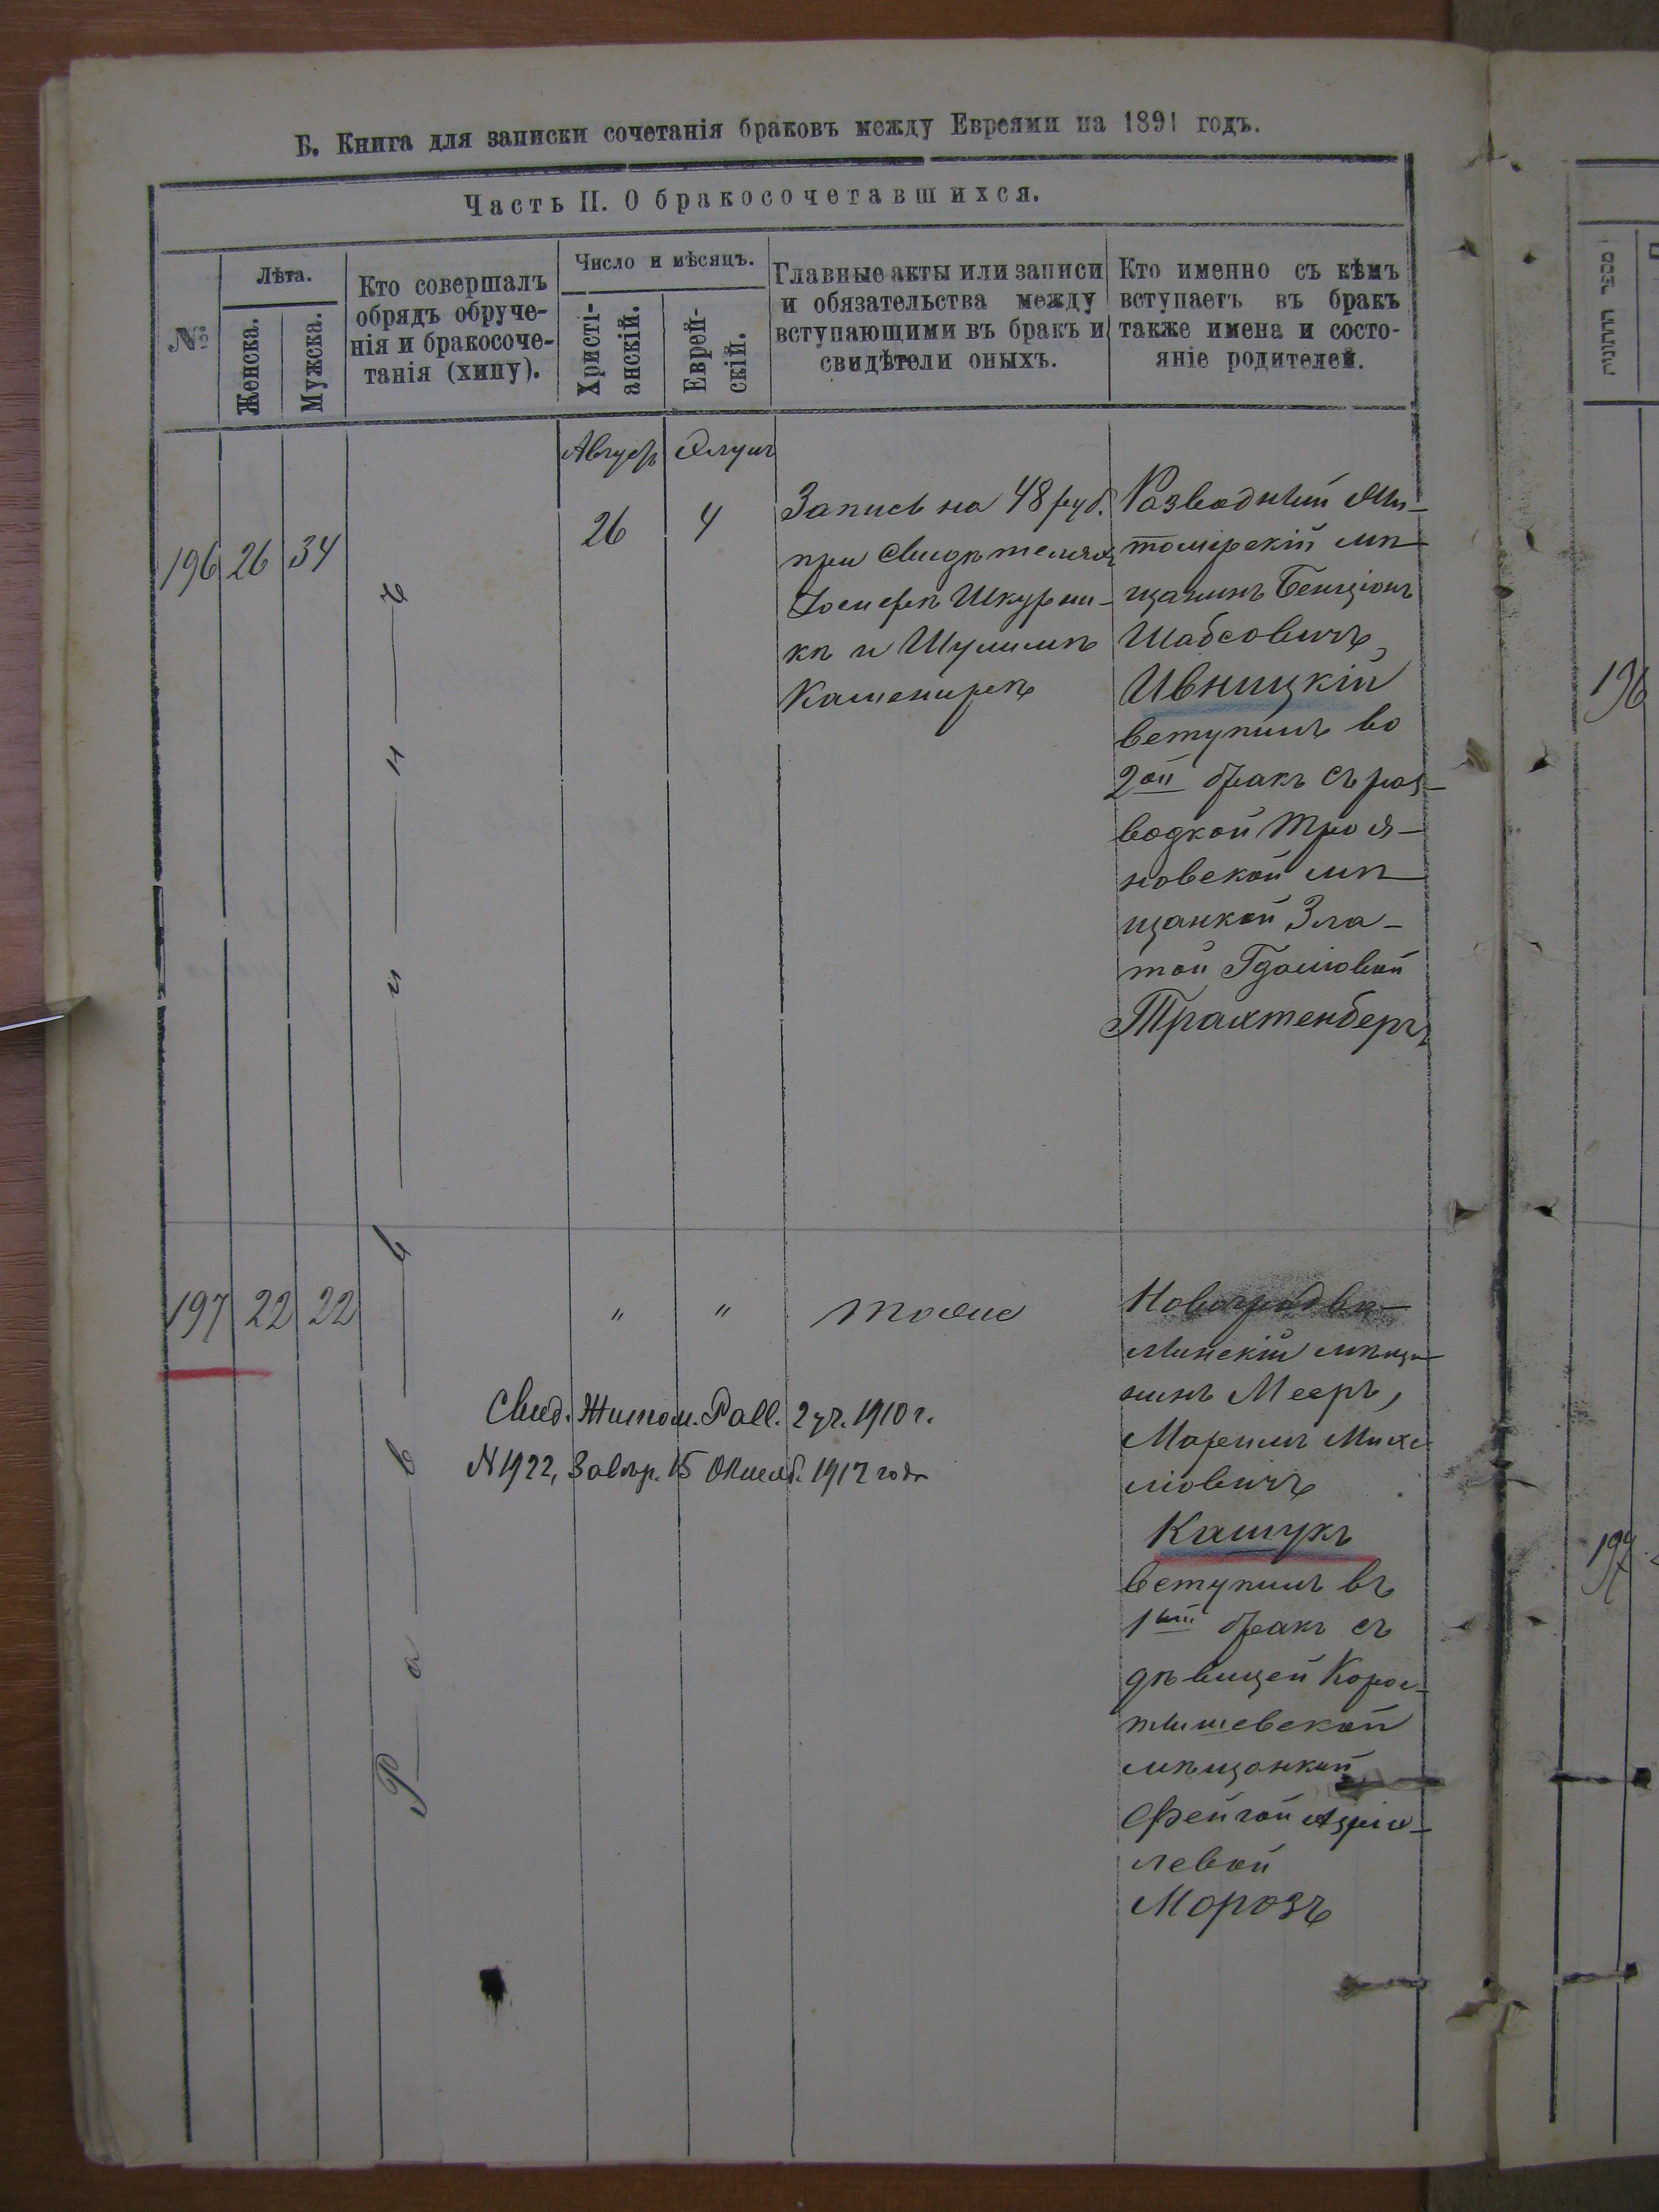 Б. Книга для записки сочетанія браковъ между Евреями на 1891 годъ.
Часть II. О бракосочетавшихся.
№
Лѣта.
Женска.
Мужска.
Кто совершалъ
обрядъ обруче-
нія и бракосоче-
танія (хипу).
Число и мѣсяцъ.
Христі-
анскій.
Еврей-
скій.
Главные акты или записи
и обязательства между
вступающими въ бракъ и
свидѣтели оныхъ.
Кто именно съ кѣмъ
вступаетъ въ бракъ
также имена и состо-
яніе родителей.
Августъ
Элулъ
196
26
34
26
4
Запись на 48 руб.
при свидѣтеляхъ
Іосифѣ Шкурни-
кѣ и Шулимѣ
Кашенирѣ
Разводный Жи-
томірскій мѣ-
щанинъ Бенціонъ
Шабсовичъ
Ивницкій
вступилъ во
2ой бракъ съ раз-
водкой Троя-
новской мѣ-
щанкой Зла-
той Гдаліовой
Трахтенбергъ
Раввинъ
197
22
22
"
"
тоже
Новоградво-
лынскій мѣща-
нинъ Мееръ,
Кашукъ
вступилъ въ
1ый бракъ съ
дѣвицей Корос-
тышевской
мѣщанкой
Фейгой Азріо-
левой
Морозъ
Свид. Житом. 2 уч. 1910 г.
N 1922, 15 Октяб. 1912 года
196
197